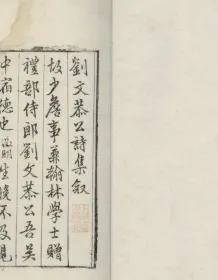 劉文恭公詩集叙
故少詹事兼翰林學士贈
禮部侍郎劉文恭公吾吴
中宿德也
生晚不及見